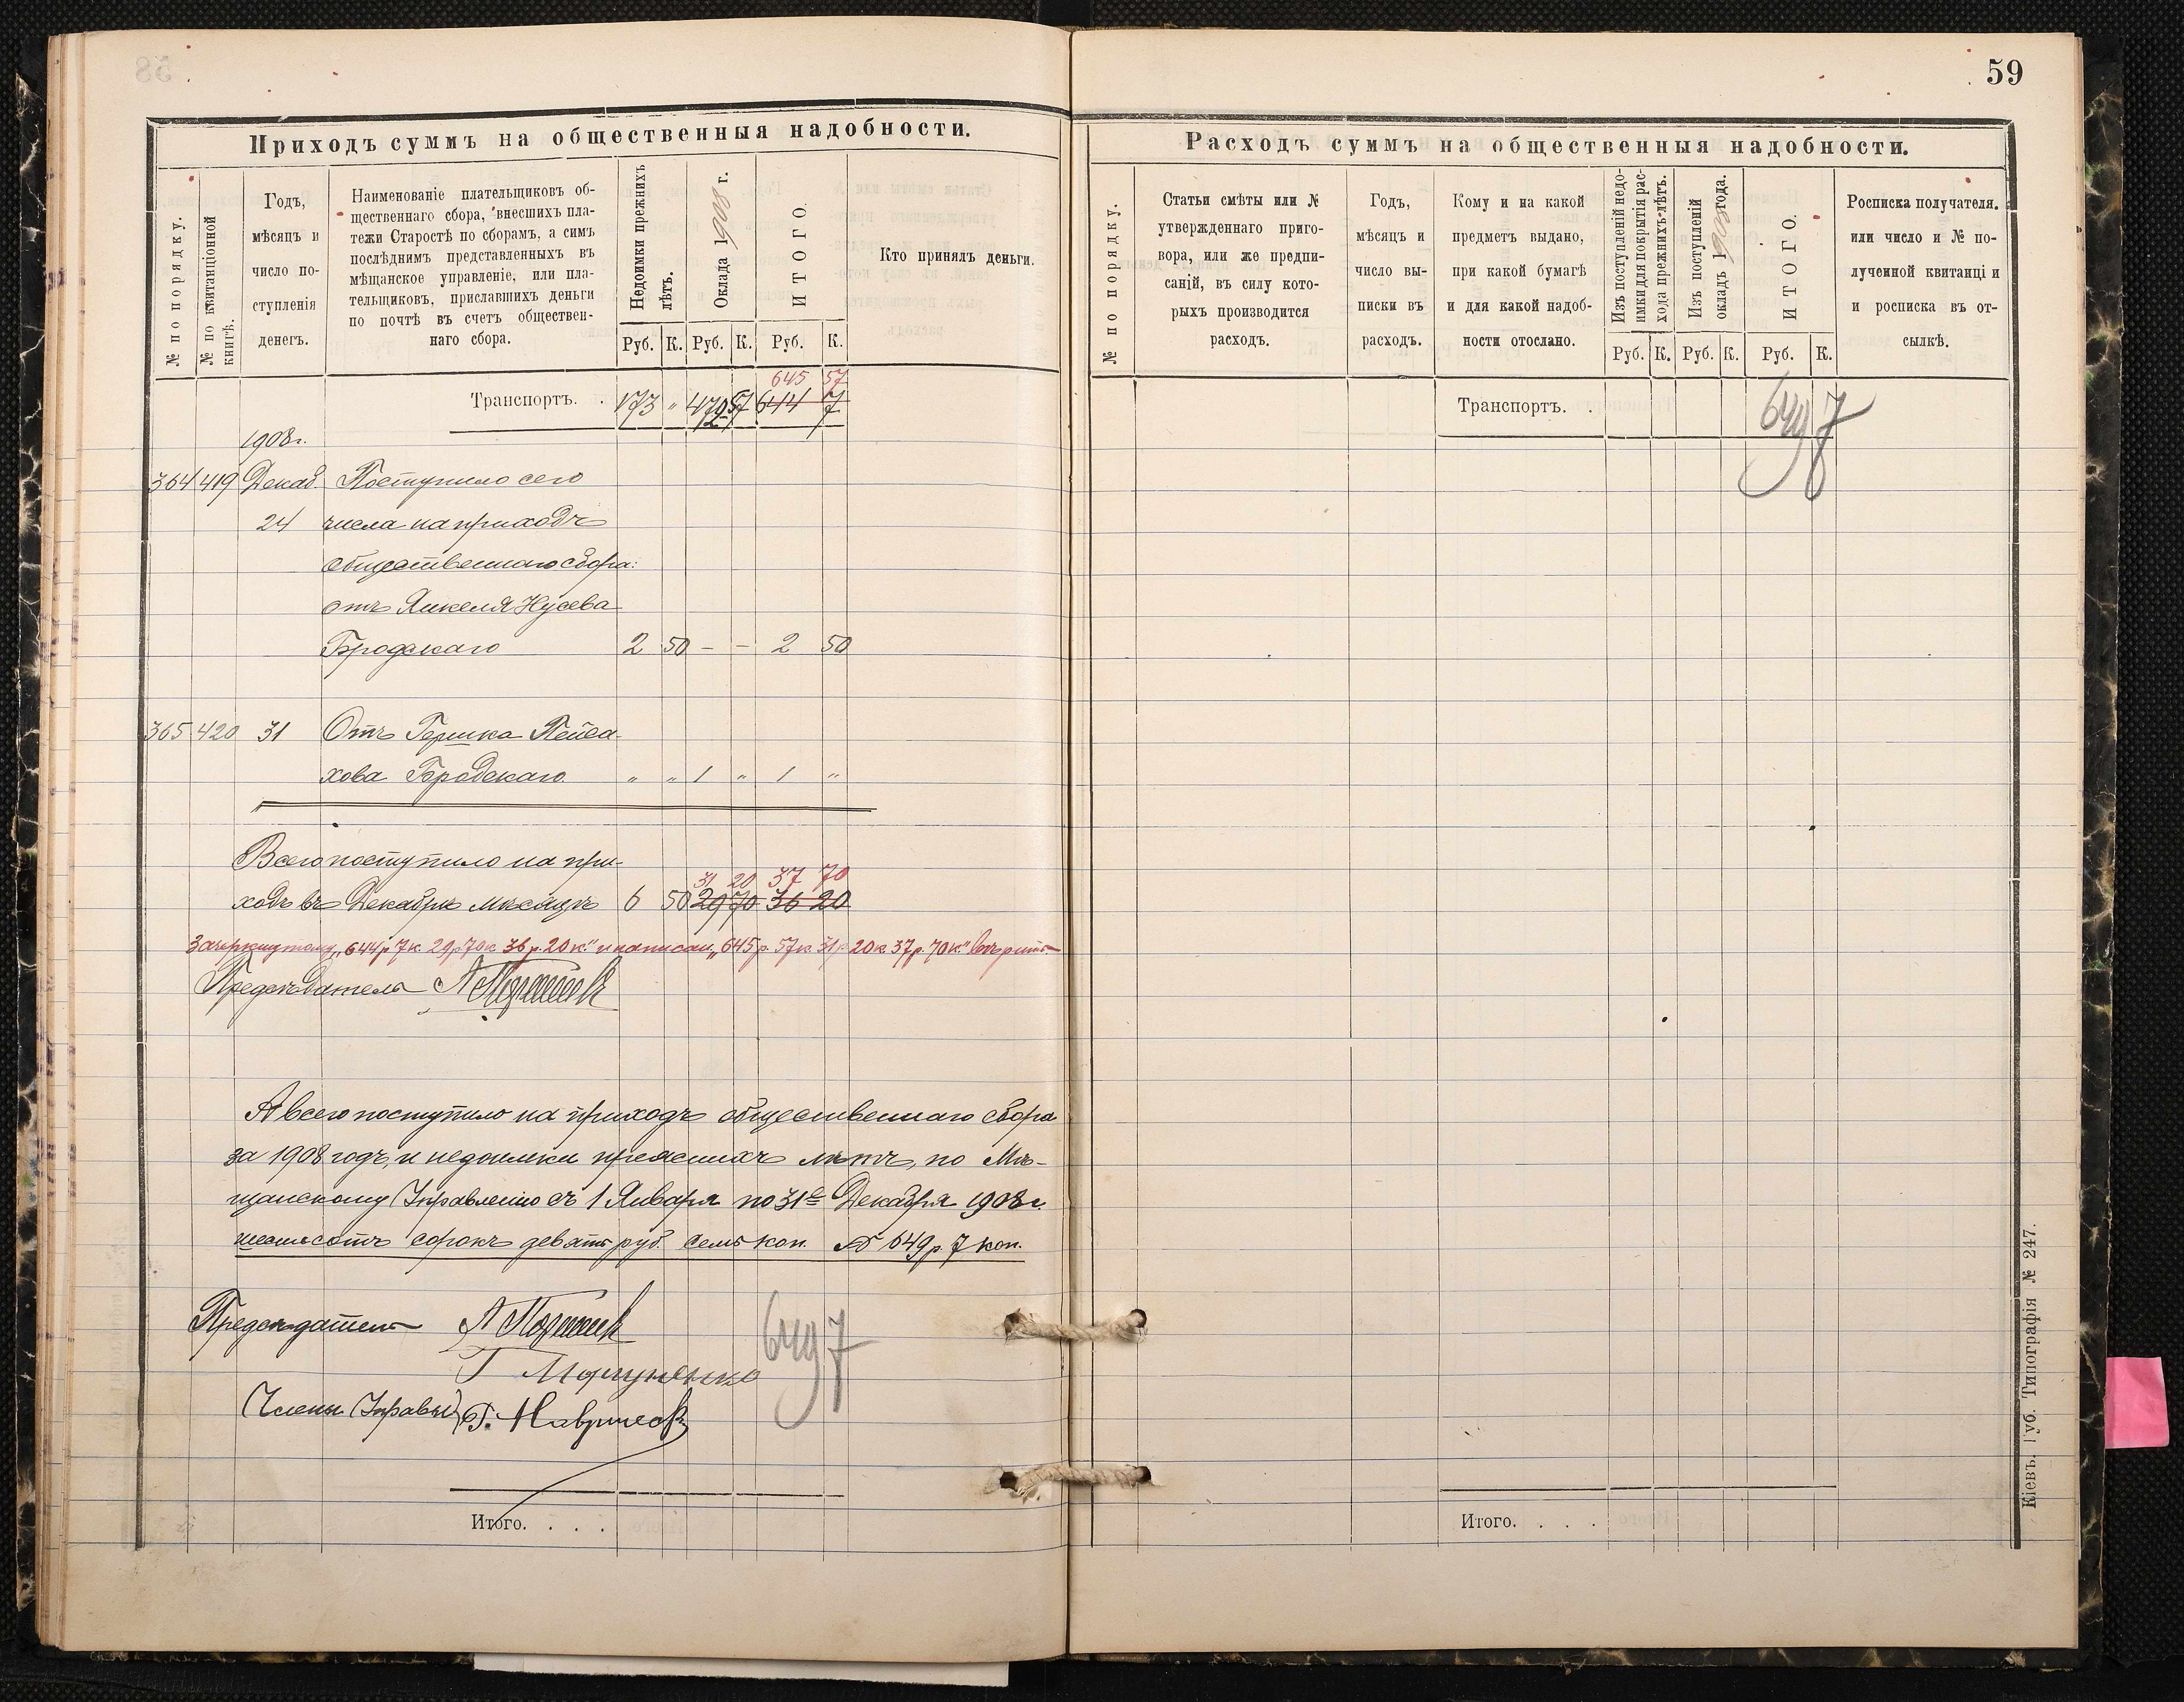 59
Приходъ суммъ на общественныя надобности.
№ по порядку.
№ по квитанціонной
книгѣ.
Годъ,
мѣсяцъ и
число по-
ступленія
денегъ.
Наименованіе плательщиковъ об-
щественнаго сбора, внесшихъ пла-
тежи Старостѣ по сборамъ, а симъ
послѣднимъ представленныхъ въ
мѣщанское управленіе, или пла-
тельщиковъ, приславшихъ деньги
по почтѣ въ счетъ обществен-
наго сбора.
Недоимки прежнихъ
лѣтъ.
Оклада 1908 г.
ИТОГО.
Кто принялъ деньги.
Руб. К. Руб. К. Руб. К.
645 57
Транспортъ. . 173 „ 472 57 644 7
1908 г.
364 419 Декаб. Поступило сего
24 числа на приходъ
общественнаго сбора:
отъ Янкеля Нусева
Бродскаго 2 50 – – 2 50
365 420 31 Отъ Гершка Пейса-
хова Бродскаго „ „ 1 „ 1 „
Всего поступило на при-
31 20 37 70
ходъ въ Декабрѣ мѣсяцѣ 6 50 29 70 36 20
Зачеркнутому „644 р 7 к 29 р 70 к 36 р. 20 к." и написан. „645 р. 57 к 31 р 20 к 37 р. 70 к." вѣрить
Предсѣдатель
А всего поступило на приходъ общественнаго сбора
за 1908 годъ, и недоимки прежнихъ лѣтъ, по Мѣ-
щанскому Управленію съ 1 Января по 31е Декабря 1908 г.
шестьсотъ сорокъ девять руб. семь коп. 649 р 7 коп.
Предсѣдатель
649 7
Члены Управы
Итого. . . .
Расходъ суммъ на общественныя надобности.
№ по порядку.
Статьи смѣты или №
утвержденнаго приго-
вора, или же предпи-
саній, въ силу кото-
рыхъ производится
расходъ.
Годъ,
мѣсяцъ и
число вы-
писки въ
расходъ.
Кому и на какой
предметъ выдано,
при какой бумагѣ
и для какой надоб-
ности отослано.
Изъ поступленій недо-
имки для покрытія рас-
хода прежнихъ лѣтъ.
Изъ поступленій
окладъ 1908 года.
ИТОГО.
Росписка получателя.
или число и № по-
лученной квитанціи
и росписка въ от-
сылкѣ.
Руб. К. Руб. К. Руб. К.
Транспортъ. . 649 7
Итого. . . .
Кіевъ. Губ. Типографія № 247.